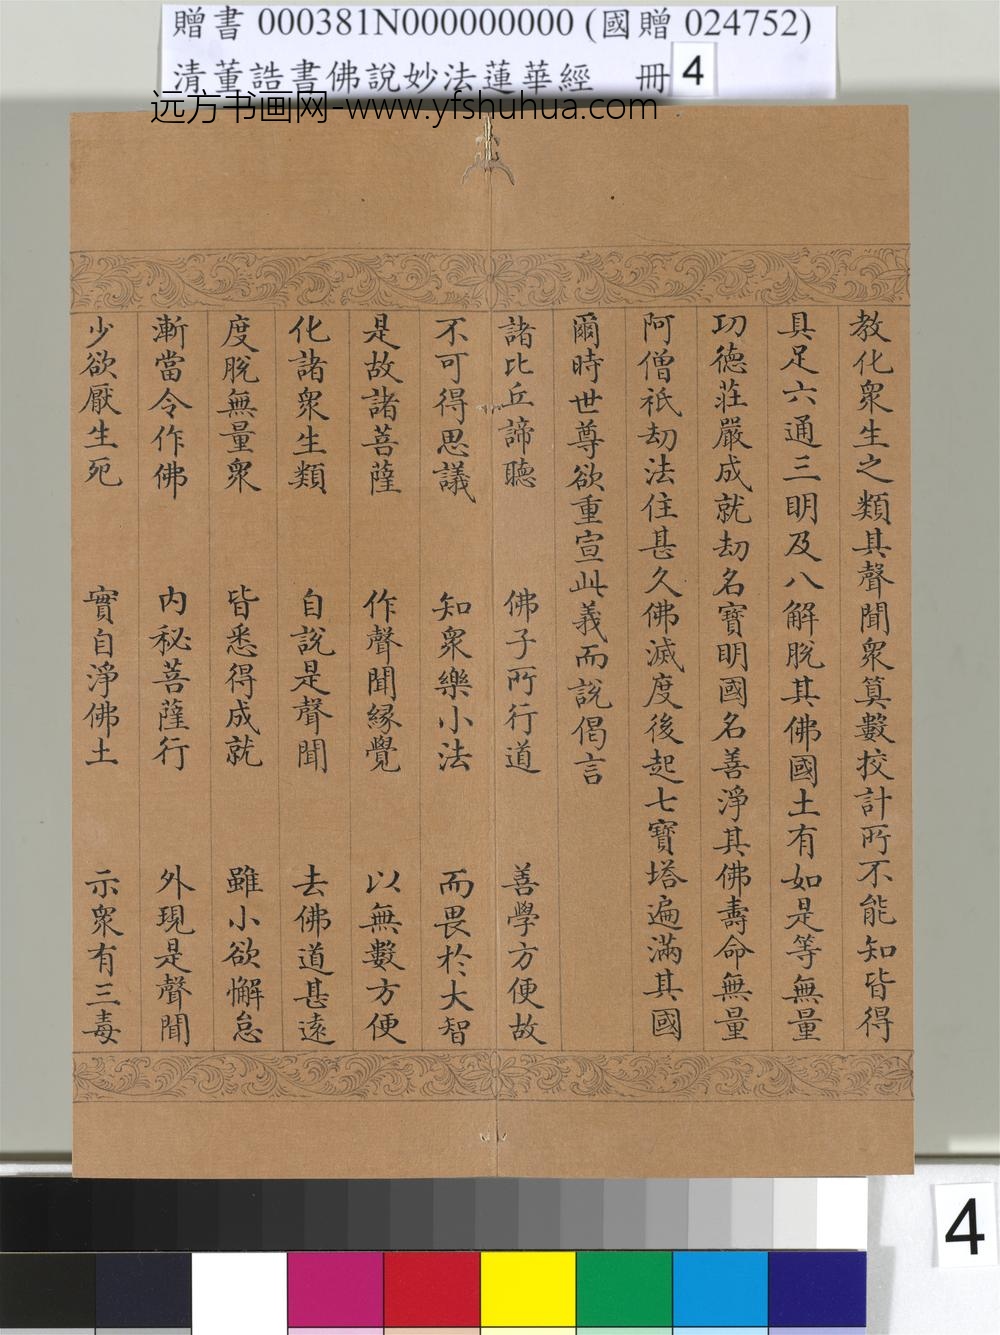 贈書 000381N000000000 (國贈 024752)
清董誥書佛說妙法蓮華經 冊 4
远方书画网-www.yfshuhua.com
教化衆生之類其聲聞衆算數挍計所不能知皆得
具足六通三明及八解脫其佛國土有如是等無量
功德莊嚴成就劫名寶明國名善淨其佛壽命無量
阿僧祇劫法住甚久佛滅度後起七寶塔遍滿其國
爾時世尊欲重宣此義而說偈言
諸比丘諦聽 佛子所行道 善學方便故
不可得思議 知衆樂小法 而畏於大智
是故諸菩薩 作聲聞緣覺 以無數方便
化諸衆生類 自說是聲聞 去佛道甚遠
度脫無量衆 皆悉得成就 雖小欲懈怠
漸當令作佛 內秘菩薩行 外現是聲聞
少欲厭生死 實自淨佛土 示衆有三毒
4